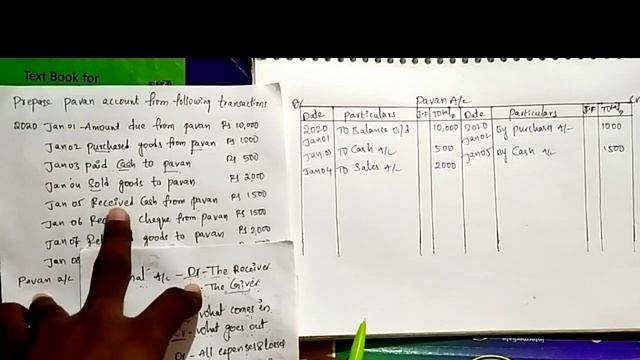 Text Book for
Prepare pavan account from following transactions
2020 Jan 01 Amount due from pavan Rs 10,000
Jan 02 purchased goods from pavan Rs 1000
Jan 03 paid Cash to pavan Rs 500
Jan 04 Sold goods to pavan Rs 2000
Jan 05 Received Cash from pavan Rs 1500
Jan 06 cheque from pavan Rs 1500
Jan 07 goods to pavan Rs 2,000
Jan 08
Pavan a/c
A/c - Dr - The Receiver
- The Giver
what comes in
Cr - what goes out
Dr - All expenses & losses
Dr Pavan A/c Cr
Date Particulars J.F Total Date Particulars J.F Total
2020 Jan 01 To Balance b/d 10,000 2020 Jan 02 By purchase A/c 1000
Jan 03 To Cash A/c 500 Jan 05 By Cash A/c 1500
Jan 04 To Sales A/c 2000
Intermediate